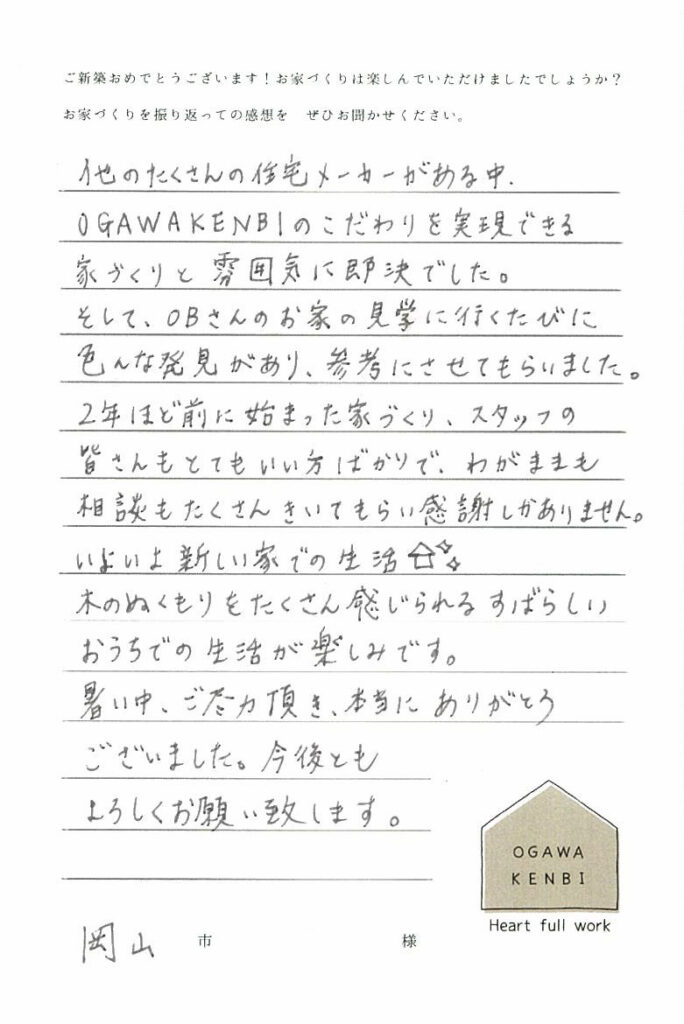 ご新築おめでとうございます！お家づくりは楽しんでいただけましたでしょうか？
お家づくりを振り返っての感想を　ぜひお聞かせください。
他のたくさんの住宅メーカーがある中、
OGAWAKENBIのこだわりを実現できる
家づくりと雰囲気に即決でした。
そして、OBさんのお家の見学に行くたびに
色んな発見があり、参考にさせてもらいました。
2年ほど前に始まった家づくり、スタッフの
皆さんもとてもいい方ばかりで、わがままも
相談もたくさんきいてもらい感謝しかありません。
いよいよ新しい家での生活
木のぬくもりをたくさん感じられるすばらしい
おうちでの生活が楽しみです。
暑い中、ご尽力頂き、本当にありがとう
ございました。今後とも
よろしくお願い致します。
OGAWA
KENBI
Heart full work
岡山 市 様